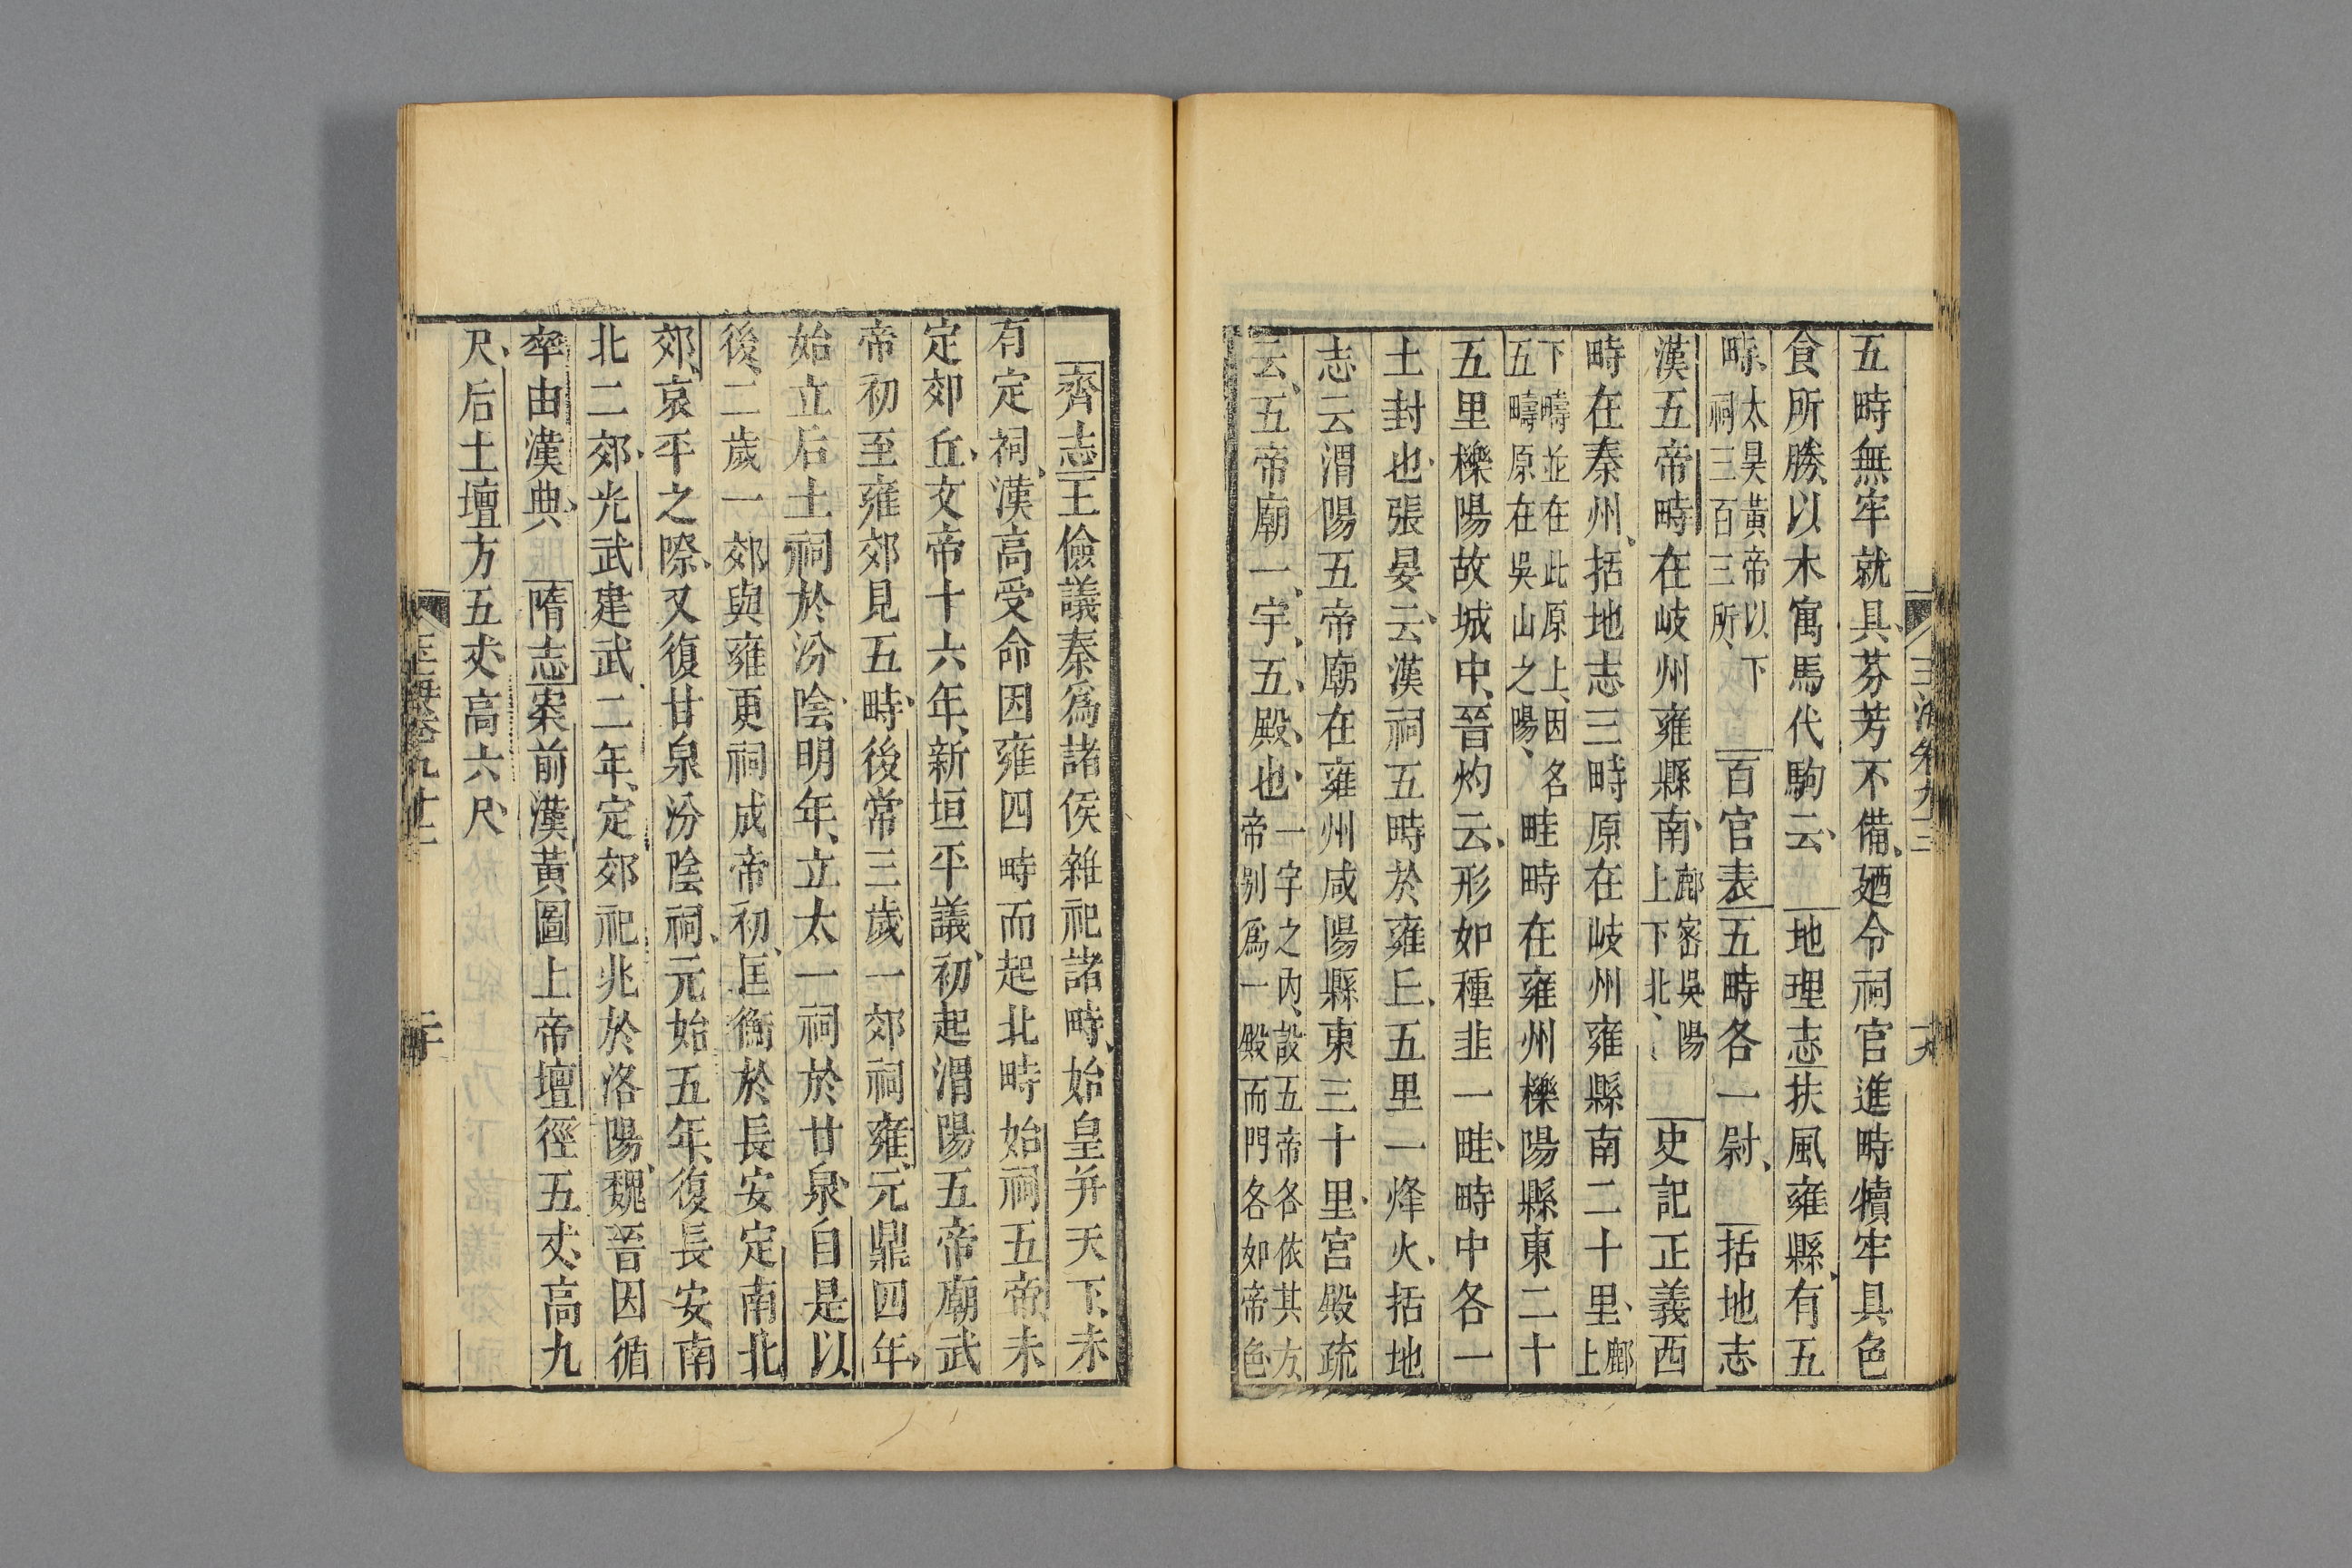 五畤無牢就具、芬芳不備、廼令祠官進畤犢牢具色
食所勝、以木寓馬代駒云、地理志扶風雍縣、有五
畤、太昊黃帝以下祠三百三所、百官表五畤各一尉、括地志
漢五帝畤在岐州雍縣南、鄜密吳陽上下北、史記正義西
畤在秦州、括地志三畤原在岐州雍縣南二十里、鄜上
下疇並在此原上、因名五疇原在吳山之陽、畦畤在雍州櫟陽縣東二十
五里櫟陽故城中、晉灼云、形如種韭一畦、畤中各一
土封也、張晏云、漢祠五畤於雍上、五里一烽火、括地
志云渭陽五帝廟在雍州咸陽縣東三十里、宮殿疏
云、五帝廟一、宇、五、殿、也、一宇之內、設五帝各依其方、帝别爲一殿而門各如帝色、
玉海卷九十三
十九
齊志王儉議秦爲諸侯雜祀諸畤、始皇并天下、未
有定祠、漢高受命因雍四畤而起北畤始祠五帝、未
定郊丘、文帝十六年、新垣平議、初起渭陽五帝廟武
帝初至雍郊見五畤、後常三歲一郊祠雍、元鼎四年、
始立后土祠於汾陰、明年、立太一祠於甘泉、自是以
後、二歲一郊與雍更祠成帝初、匡衡於長安定南北
郊、哀平之際、又復甘泉汾陰祠、元始五年、復長安南
北二郊、光武建武二年、定郊祀兆於洛陽、魏晉因循
率由漢典、隋志案前漢黃圖上帝壇徑五丈、高九
尺、后土壇方五丈、高六尺、
玉海卷九十三
二十